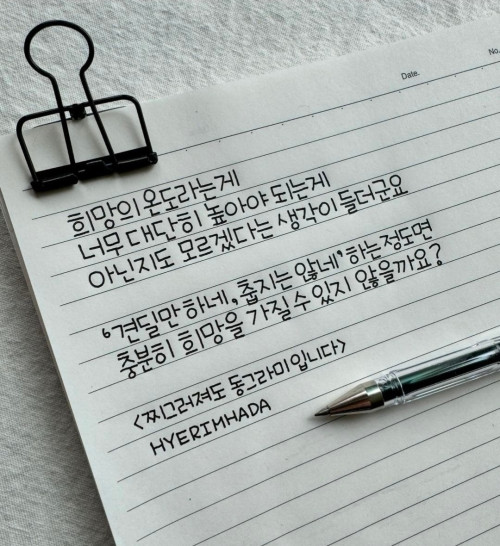 No.
Date.
희망의 온도라는게
너무 대단히 높아야 되는게
아닌지도 모르겠다는 생각이 들더군요
'견딜만 하네, 춥지는 않네' 하는정도면
충분히 희망을 가질 수 있지 않을까요?
<찌그러져도 동그라미입니다>
HYERIMHADA